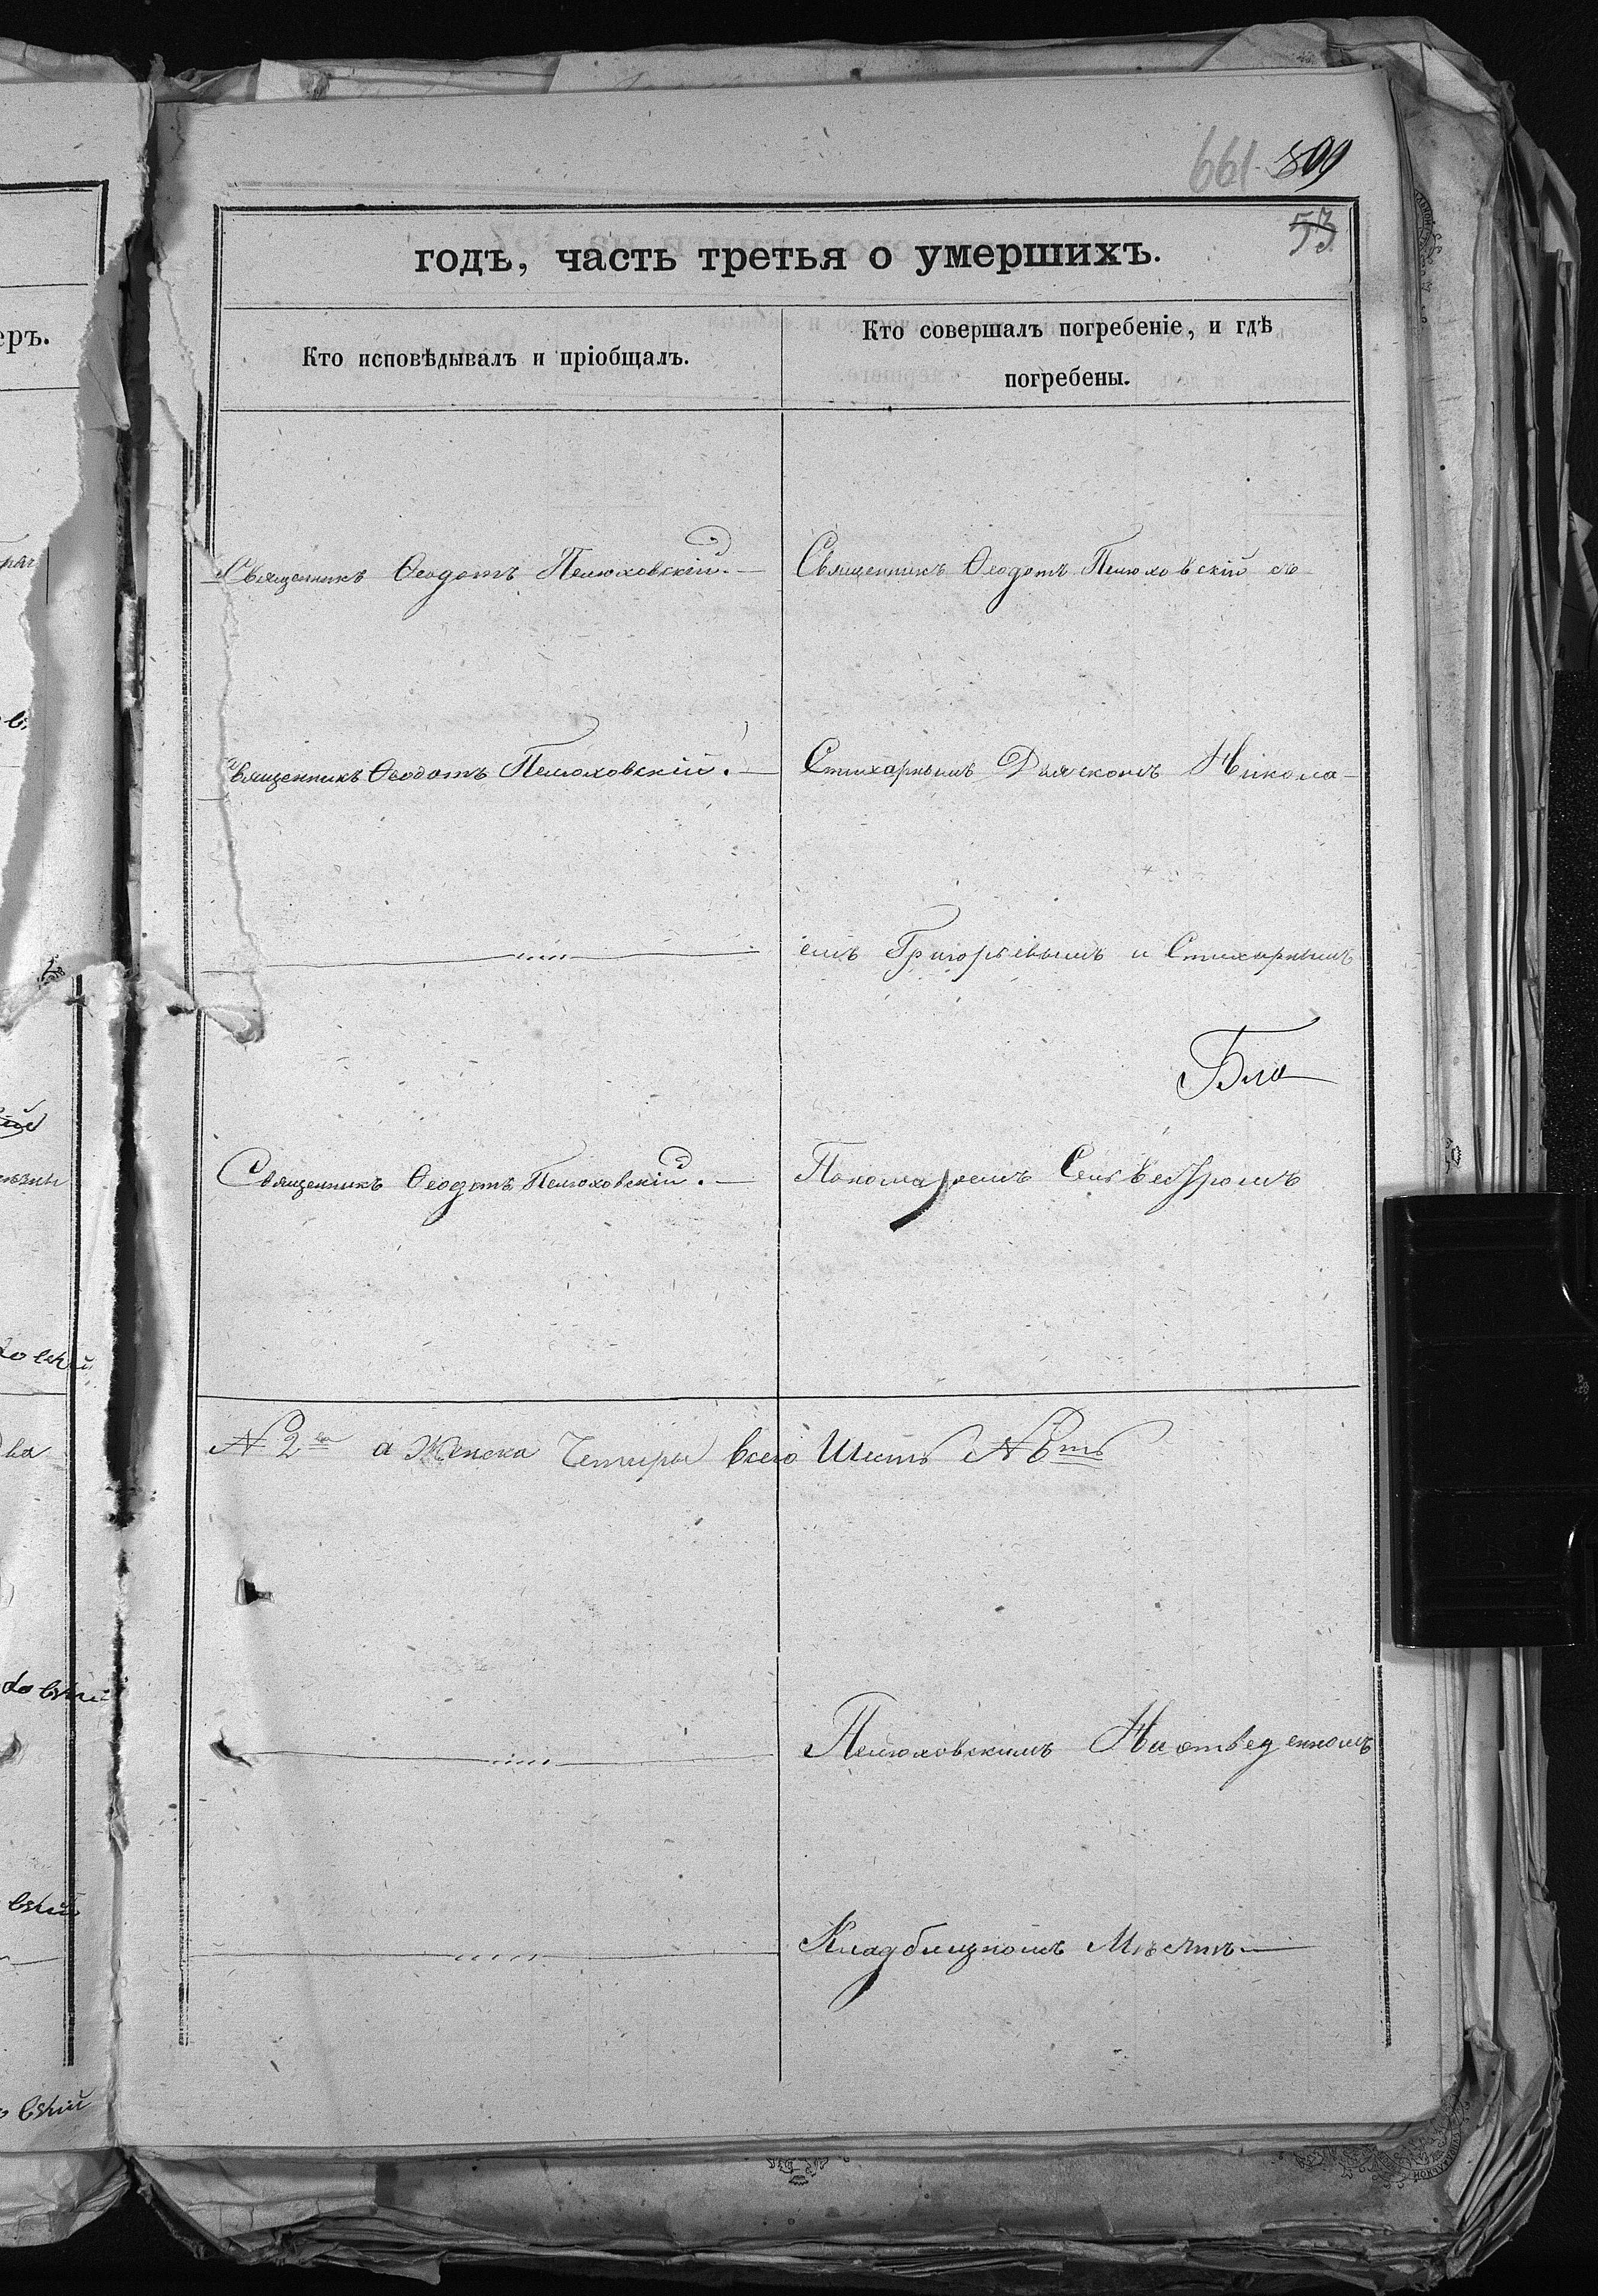 661 899
53
годъ, часть третья о умершихъ.
Кто исповѣдывалъ и пріобщалъ.
Кто совершалъ погребеніе, и гдѣ
погребены.
Священникъ Ѳеодотъ Пелюховскій. —
Священникъ Ѳеодотъ Пелюховскій съ
Священникъ Ѳеодотъ Пелюховскій. —
Стихарнымъ Дьячкомъ Никола-
емъ Григорьевымъ и Стихарнымъ
Бла
Священникъ Ѳеодотъ Пелюховскій. —
Пономаремъ Сельвестромъ
№ 2 а Женска Четыре всего Шесть № 6ть
Пелюховскимъ На отведенномъ
Кладбищномъ Мѣстѣ —